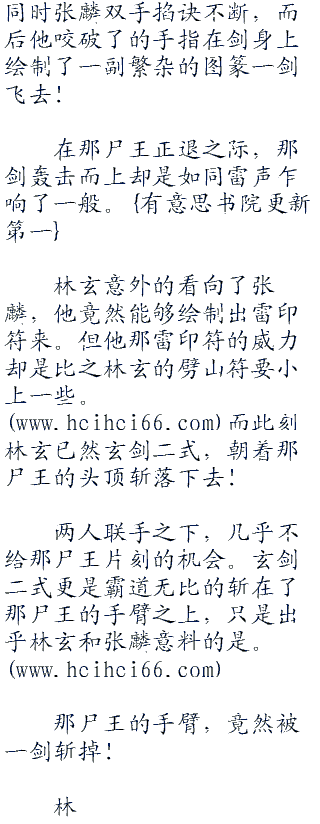 同时张麟双手掐诀不断，而
后他咬破了的手指在剑身上
绘制了一副繁杂的图篆一剑
飞去！
在那尸王正退之际，那
剑轰击而上却是如同雷声乍
响了一般。{有意思书院更新
第一}
林玄意外的看向了张
麟，他竟然能够绘制出雷印
符来。但他那雷印符的威力
却是比之林玄的劈山符要小
上一些。
(www.hcihci66.com)而此刻
林玄已然玄剑二式，朝着那
尸王的头顶斩落下去！
两人联手之下，几乎不
给那尸王片刻的机会。玄剑
二式更是霸道无比的斩在了
那尸王的手臂之上，只是出
乎林玄和张麟意料的是。
(www.hcihci66.com)
那尸王的手臂，竟然被
一剑斩掉！
林